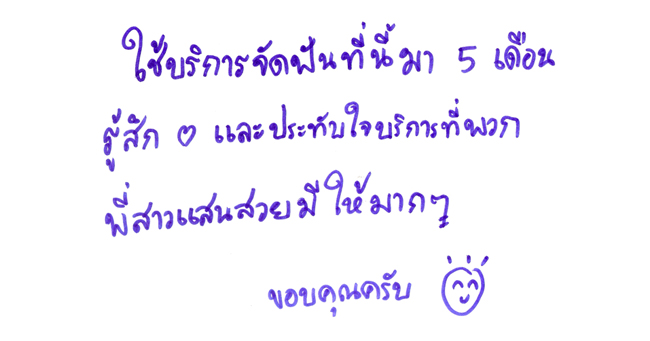 ใช้บริการจัดฟันที่นี่มา 5 เดือน
รู้สึก ♡ และประทับใจบริการที่พวก
พี่สาวแสนสวยมีให้มากๆ
ขอบคุณครับ